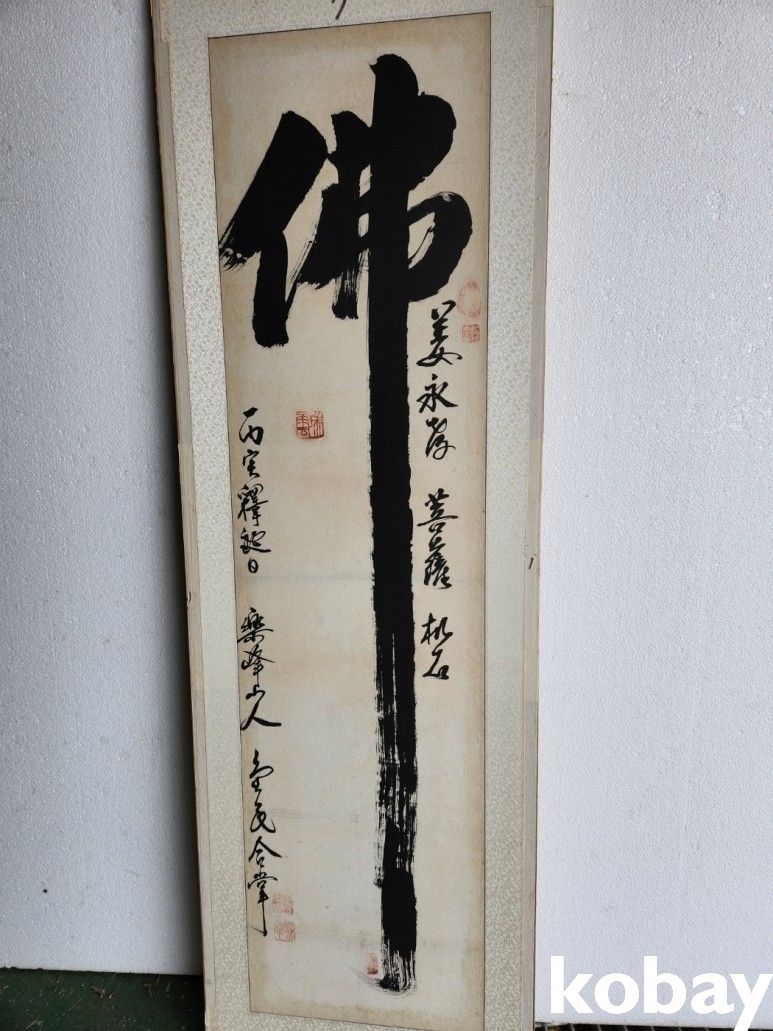 佛
姜永 菩薩
丙寅釋誕日 樂峰山人 合掌
kobay